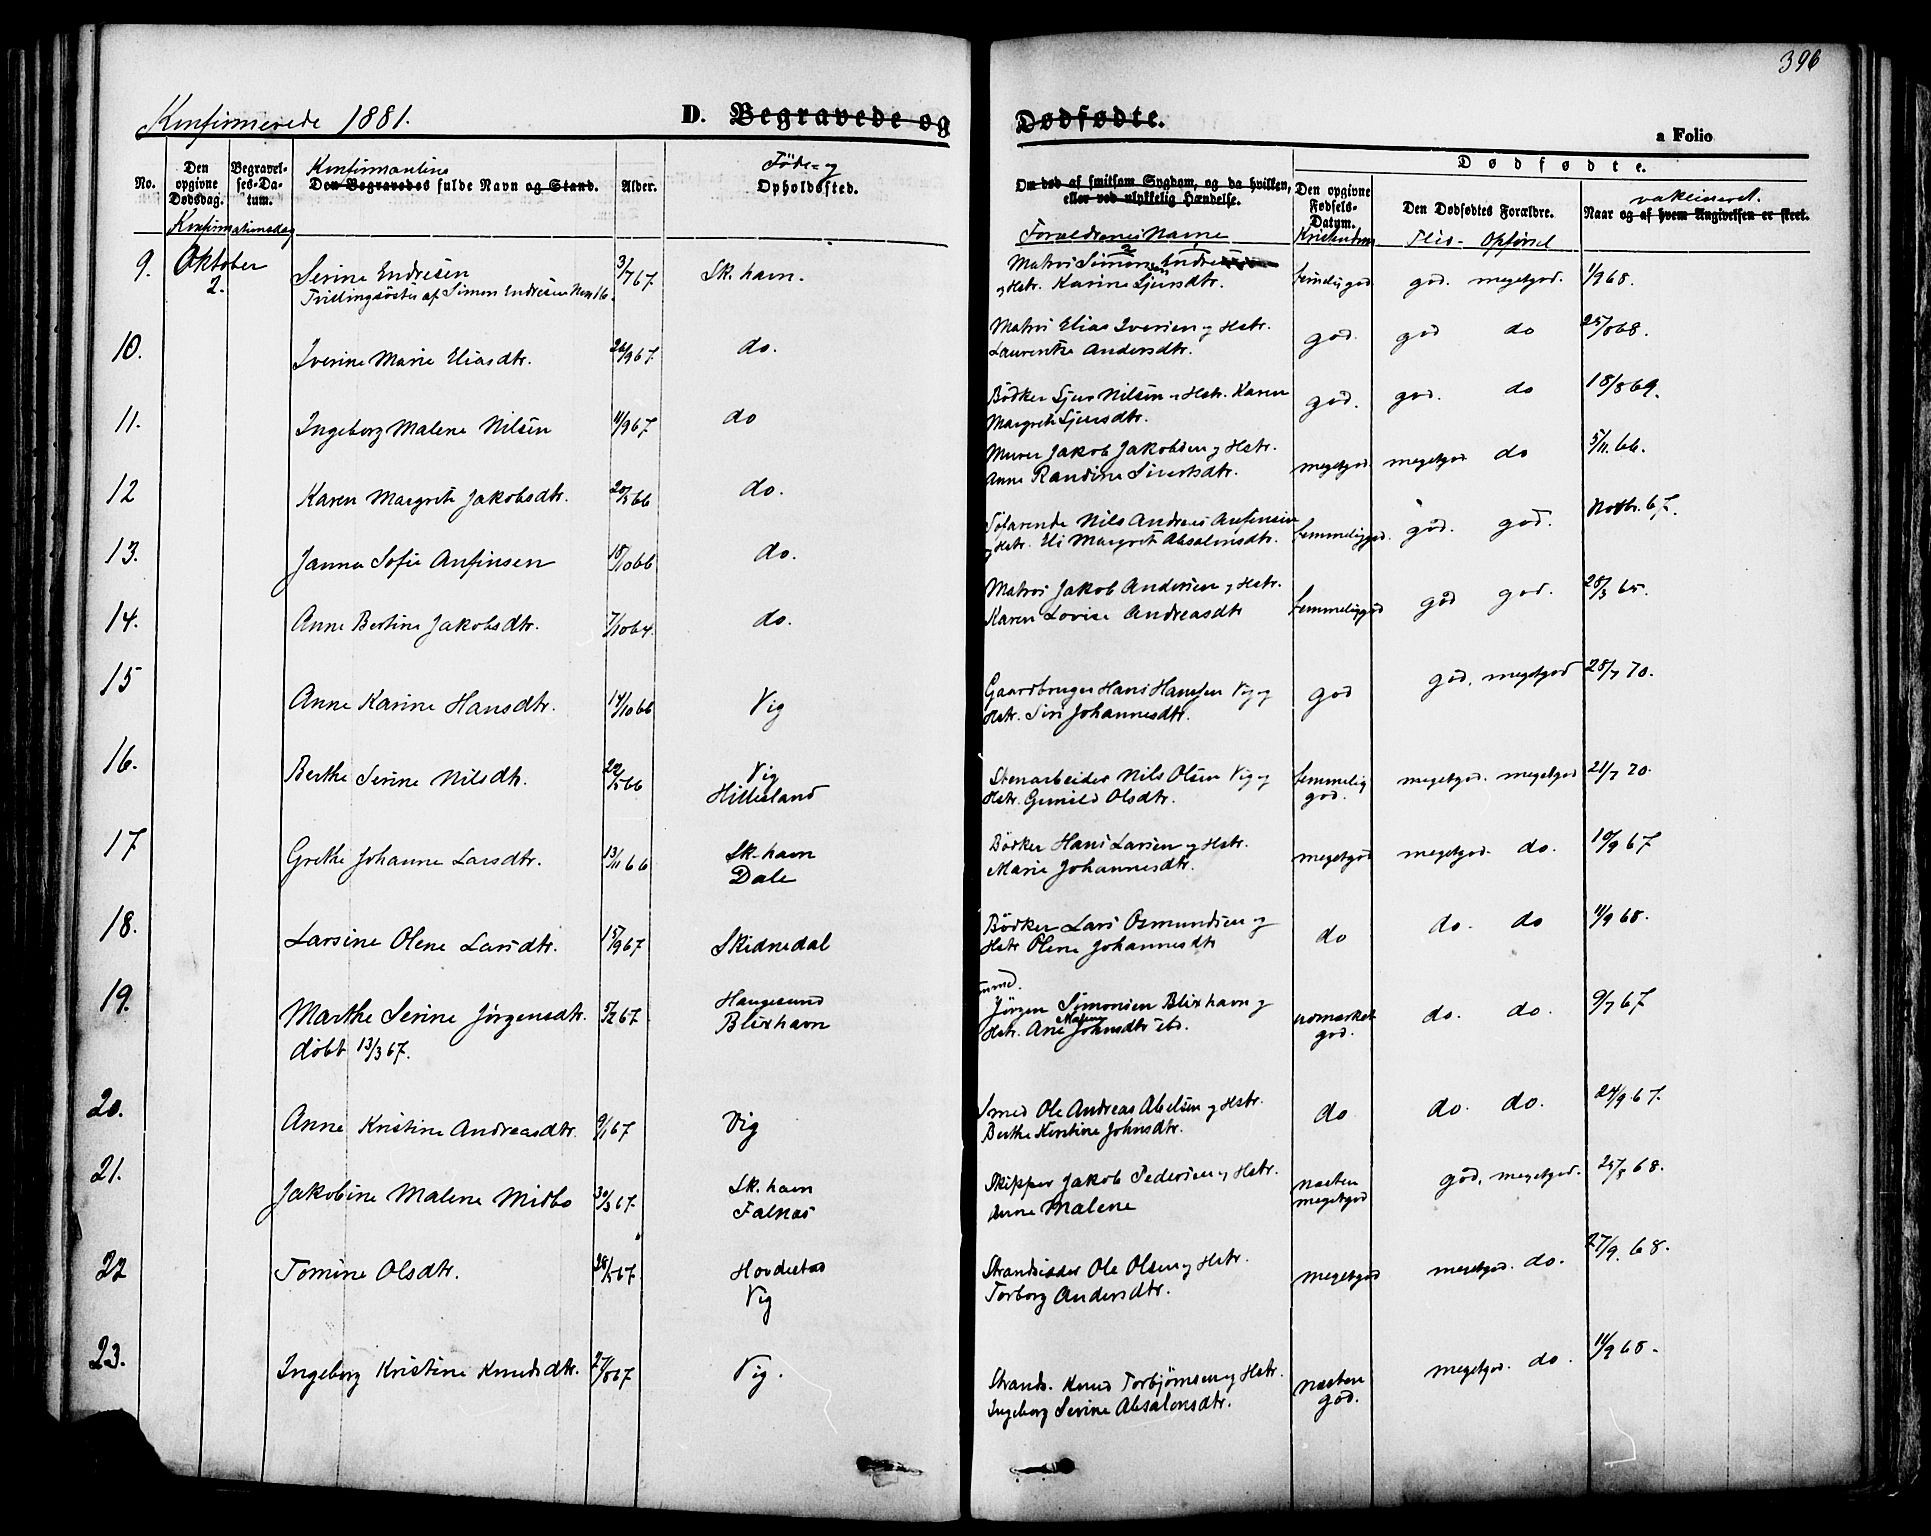 396
Konfirmerede 1881.
D. Begravede og Dødfødte.
a Folio
No.
Den opgivne Dødsdag.
Begravelses-Datum.
Konfirmationsdag
Konfirmantens
Den Begravedes fulde Navn og Stand.
Alder.
Føde- og
Opholdssted.
Om død af smitsom Sygdom, og da hvilken,
eller ved ulykkelig Hændelse.
Forældrenes Navne
Dødfødte.
Den opgivne Fødsels-Datum.
Kristendom
Den Dødfødtes Forældre.
Flid - Opførsel
vakcineret.
Naar og af hvem Angivelsen er skeet.
9. Oktober 2. Serine Endresen 3/7 67 Sk.havn. Matros Simon Endresen god. megetgod. 1/9 68.
Trillingsøster af Simon Endresen No 16. og Hstr. Karine Sjursdtr.
10. Iverine Marie Eliasdtr. 26/9 67. do. Matros Elias Iversen og Hstr. god. god do 25/8 68.
Laurentze Andersdtr.
11. Ingeborg Malene Nilsen 11/9 67 do Bødker Sjur Nilsen og Hstr. Karen god. god. do 18/8 69.
Margrete Sjursdtr.
12 Karen Margrete Jakobsdtr. 20/3 66 do. Murer Jakob Jakobsen og Hstr. megetgod megetgod do 5/11 66.
Anne Randine Sivertsdtr.
13. Janna Sofie Anfinsen 18/10 66 do. Søfarende Nils Andreas Anfinsen temmeliggod. god. god. Novbr. 67.
og Hstr. Eli Margrete Absalonsdtr.
14. Anne Bertine Jakobsdtr. 7/10 64. do. Matros Jakob Andersen og Hstr. temmeliggod god god. 28/3 65.
Karen Lovise Andreasdtr
15 Anne Karine Hansdtr. 14/10 66 Vig Gaardbruger Hans Hansen Vig og god god, megetgod 28/7 70.
Hstr. Siri Johannesdtr.
16. Berthe Serine Nilsdtr. 22/5 66 Vig Stenarbeider Nils Olsen Vig og temmelig megetgod. megetgod 21/7 70.
Hillesland Hstr. Gunild Olsdtr. god.
17 Grethe Johanne Larsdtr. 13/11 66 Sk.havn Bødker Hans Larsen og Hstr. megetgod megetgod. do. 10/9 67
Dale Marie Johannesdtr.
18. Larsine Olene Larsdtr. 15/9 67 Skidnedal Bødker Lars Osmundsen og do do. do 11/9 68.
Hstr Olene Johannesdtr
19. Marthe Serine Jørgensdtr. 5/2 67 Haugesund Jørgen Simonsen Blixhavn og do. do. 9/7 67
døbt 13/3 67. Blixhavn Hstr. Ane Malene Johnsdtr god.
20. Anne Kristine Andreasdtr. 9/1 67 Vig Smed Ole Andreas Abelsen og Hstr. do do. do. 24/9 67.
Berthe Kirstine Johnsdtr.
21. Jakobine Malene Midbo 30/3 67. Sk.havn Skipper Jakob Pedersen og Hstr. næsten god, megetgod. 25/8 68.
Falnæs Anne Malene megetgod
22 Tomine Olsdtr. 28/5 67. Hovdestad Strandsidder Ole Olsen og Hstr. megetgod megetgod. do. 27/9. 68.
Vig Torborg Andersdtr.
23. Ingeborg Kristine Knudsdtr. 27/8 67 Vig. Strands. Knud Torbjørnsen og Hstr. næsten megetgod. do. 11/9 68.
Ingeborg Serine Absalonsdtr. god.